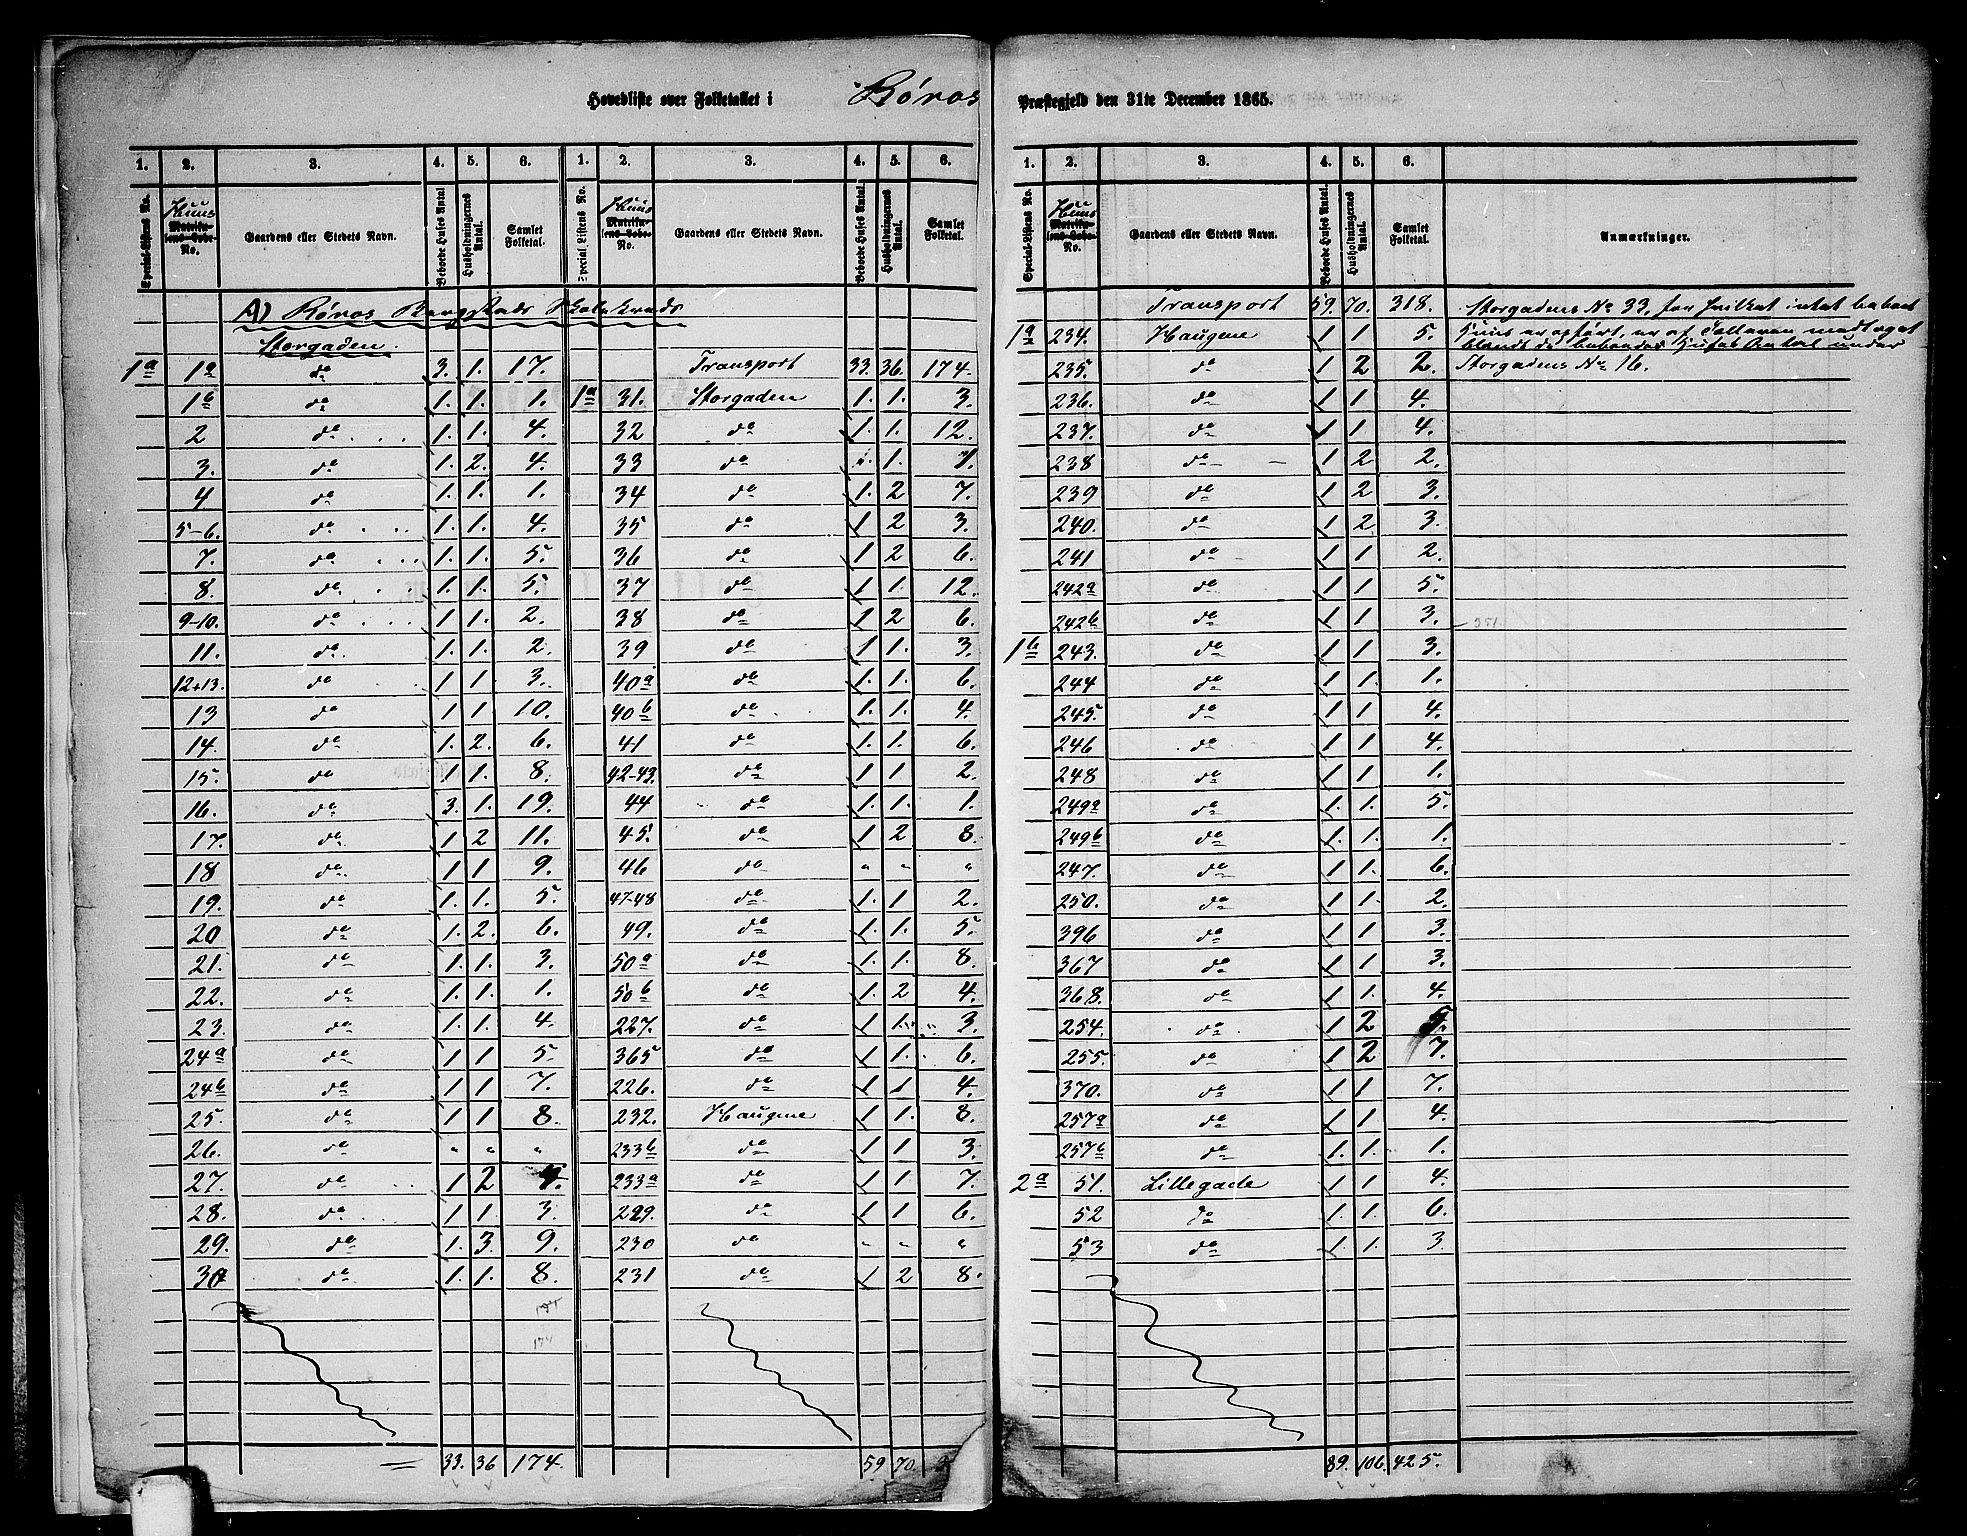 Hovedliste over Folketallet i Röros Præstegjeld den 31te December 1865.
1. 2. 3. 4. 5. 6. 1. 2. 3. 4. 5. 6.
Special-Listens No. Huus Matriku-lens Lobe-No. Gaardens eller Stedets Navn. Beboede Huses Antal Husholdningernes Antal. Samlet Folketal. Special Listens No. Huus Matriku-lens Lobe-No. Gaardens eller Stedets Navn. Beboede Huses Antal. Husholdningernes Antal. Samlet Folketal.
A) Röros Bergstads Skolekreds
Storgaden.
1a 1a do 3. 1. 17. Transport 33. 36. 174.
1b do 1. 1. 1. 1a 31. Storgaden 1. 1. 3.
2 do 1. 1. 4. 32 do 1. 1. 12.
3. do 1. 2. 4. 33 do 1. 1. 7.
4 do 1. 1. 1. 34 do 1. 2 7.
5-6. do 1. 1. 4. 35 do 1 2 3.
7. do 1. 1. 5. 36 do 1 2 6.
8. do 1. 1. 5. 37 do 1 1. 12.
9-10. do 1 1. 2. 38 do 1 2 6.
11. do 1 1. 2. 39 do 1 1. 3.
12+13. do 1 1 3. 40a do 1. 1. 6.
13 do 1 1 10. 40b do 1. 1. 4.
14. do 1. 2. 6. 41 do 1. 1. 6.
15. do 1 1. 8. 42-43. do 1 1 2.
16. do 3. 1. 19. 44 do 1. 1. 1.
17. do 1 2 11. 45. do 1 2 8.
18 do 1 1 9. 46 do " " "
19. do 1. 1. 5. 47-48 do 1. 1 2.
20 do 1. 2. 6. 49. do 1. 1. 5.
21. do 1. 1. 3. 50a do 1. 1. 8.
22. do 1. 1. 1. 50b do 1. 2 4.
23. do 1. 1. 4. 227. do 1 1. 3.
24a do 1 1 5. 365 do 1 1. 6.
24b do 1 1 7. 226. do 1 1 4.
25. do 1 1 8. 232. Haugene 1 1. 8.
26. do " " " 233b do 1 1 3.
27. do 1 2 4. 233a do 1. 1 7.
28. do 1 1. 3. 229. do 1 1 6.
29. do 1. 3. 9. 230 do " " "
30 do 1. 1. 8. 231 do 1 2 8.
174
33. 36 174. 59 70.
1. 2. 3. 4. 5. 6.
Special-Listens No. Huus Matriku-lens Lobe-No. Gaardens eller Stedets Navn. Beboede Huses Antal. Husholdningernes Antal. Samlet Folketal. Anmærkninger.
Transport 59. 70. 318. Storgadens No 33, for hvilket intet beboet
1a 234. Haugene 1 1 5. Huus er opført, er af Tælleren medtaget
blandt de beboede Huses Antal under
235. do 1 2 2. Storgadens No 16.
236. do 1 1 4.
237. do 1 1 4.
238 do 1 2 2.
239 do 1 2 3.
240. do 1 2 3.
241 do 1 1 2.
242a do 1 1 5.
242b do 1 1 3. 351
1b 243. do 1 1 3.
244 do 1 1. 1.
245. do 1 1 4.
246 do 1 1 4.
248 do 1 1 1.
249a do 1. 1. 5.
249b do 1. 1. 1.
247. do 1 1. 6.
250. do 1 1. 2.
396 do 1 1. 3.
367 do 1 1. 3.
368. do 1 1. 4.
254. do 1 2 5.
255. do 1 2 7.
370. do 1 1 7.
257a do 1 1 4.
257b do 1. 1. 1.
2a 51. Lillegade 1 1 4.
52 do 1. 1. 6.
53 do 1. 1. 3.
89. 106. 425.